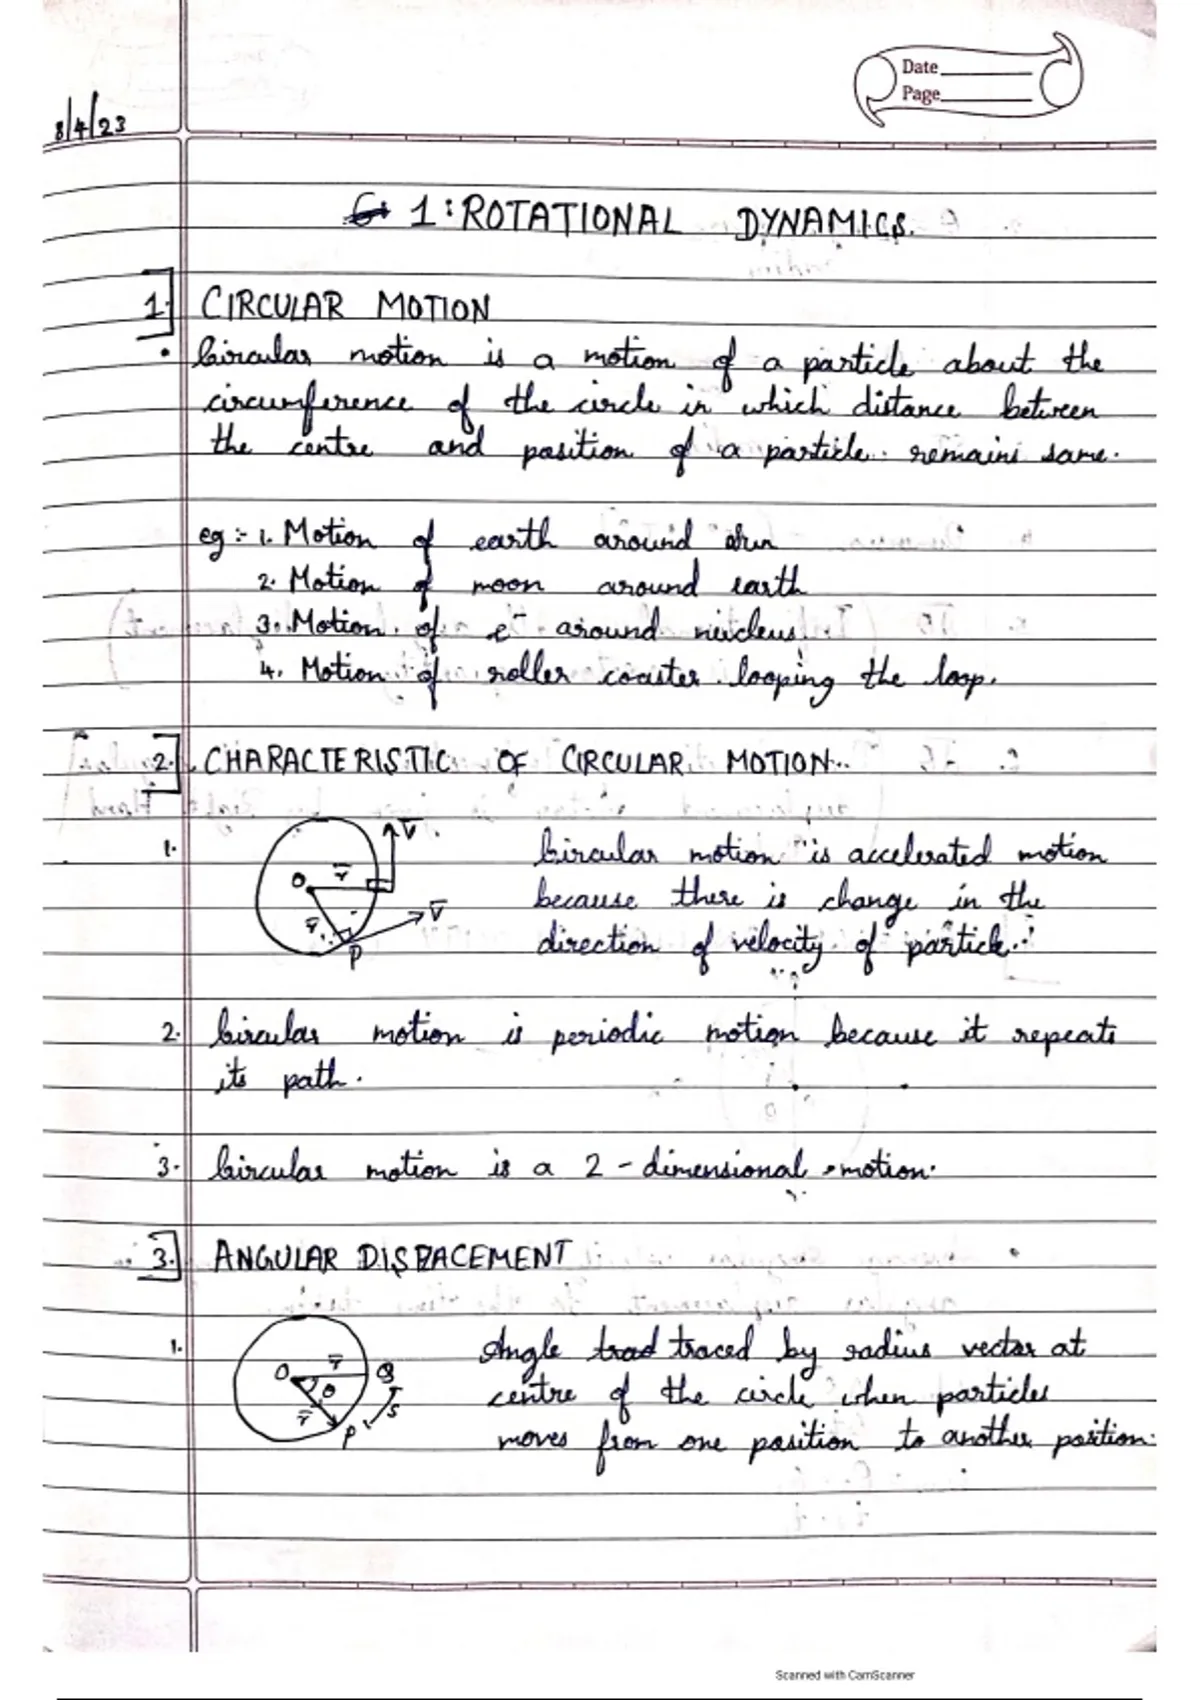 Date
Page
8/4/23
1: ROTATIONAL DYNAMICS.
1. CIRCULAR MOTION
• Circular motion is a motion of a particle about the
circumference of the circle in which distance between
the centre and position of a particle remains same.
eg :- 1. Motion of earth around sun
2. Motion of moon around earth
3. Motion of e⁻ around nucleus.
4. Motion of roller coaster looping the loop.
2. CHARACTERISTIC OF CIRCULAR MOTION
1.
V̄
O r̄
r̄ V̄
P
Circular motion is accelerated motion
because there is change in the
direction of velocity of particle.
2. Circular motion is periodic motion because it repeats
its path.
3. Circular motion is a 2-dimensional motion.
3. ANGULAR DISPLACEMENT
1.
O r̄ Q
θ
r̄ S
P
Angle traced by radius vector at
centre of the circle when particles
moves from one position to another postion.
Scanned with CamScanner